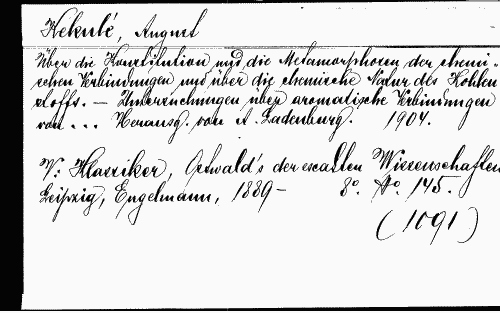 Kekulé, August
Über die Konstitution und die Metamorphosen der chemi-
schen Verbindungen und über die chemische Natur des Kohlen
stoffs. — Untersuchungen über aromatische Verbindungen
von ... Herausg. von A. Ladenburg. 1904.
V: Klassiker, Ostwald's der exakten Wissenschaften
Leipzig, Engelmann, 1889- 8º. Nº. 145.
(1091)